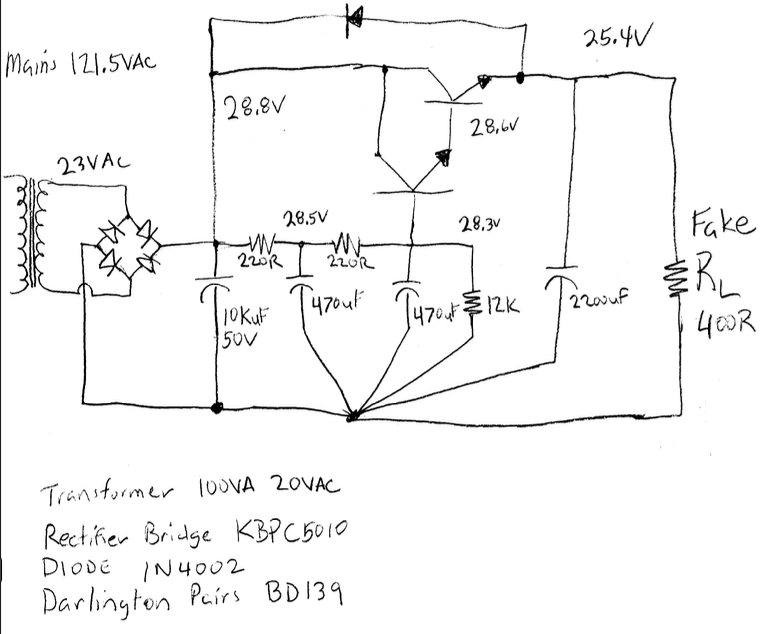 Mains 121.5VAC
25.4V
28.8V
28.6V
23VAC
28.5V
28.3V
220R
220R
Fake
RL
400R
10KuF
50V
470uF
470uF
12K
2200uF
Transformer 100VA 20VAC
Rectifier Bridge KBPC5010
DIODE 1N4002
Darlington Pairs BD139